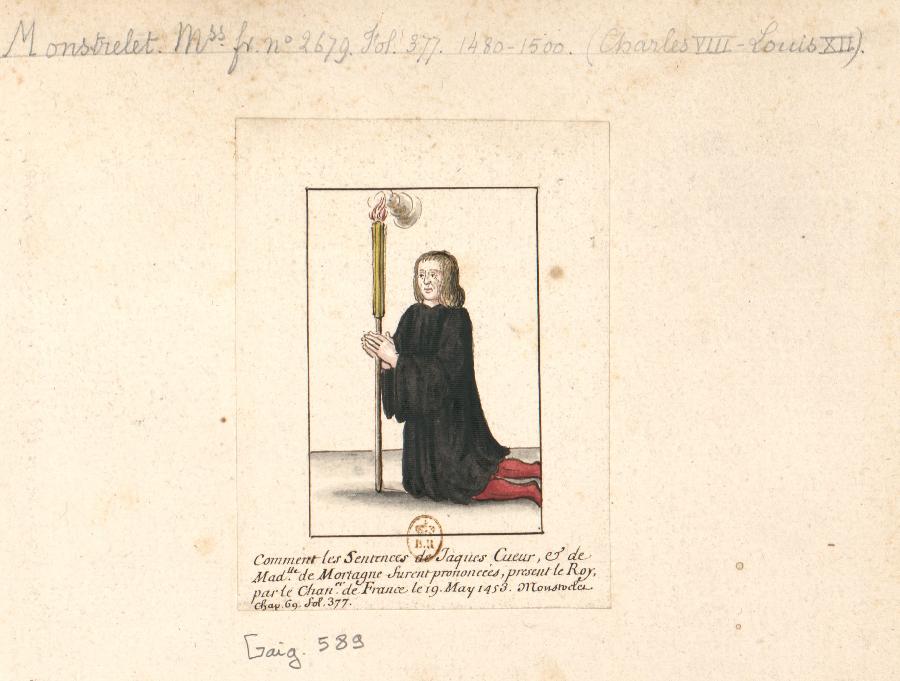 Monstrelet. Mss. fr. no 2679. Fol. 377. 1480-1500. (Charles VIII - Louis XII).
Comment les Sentences de Jaques Cueur, & de
Madlle. de Mortagne furent prononcées, present le Roy,
par le Chanr. de France le 19. May 1453. Monstrelet
Chap. 69. fol. 377.
B.R
Gaig. 589